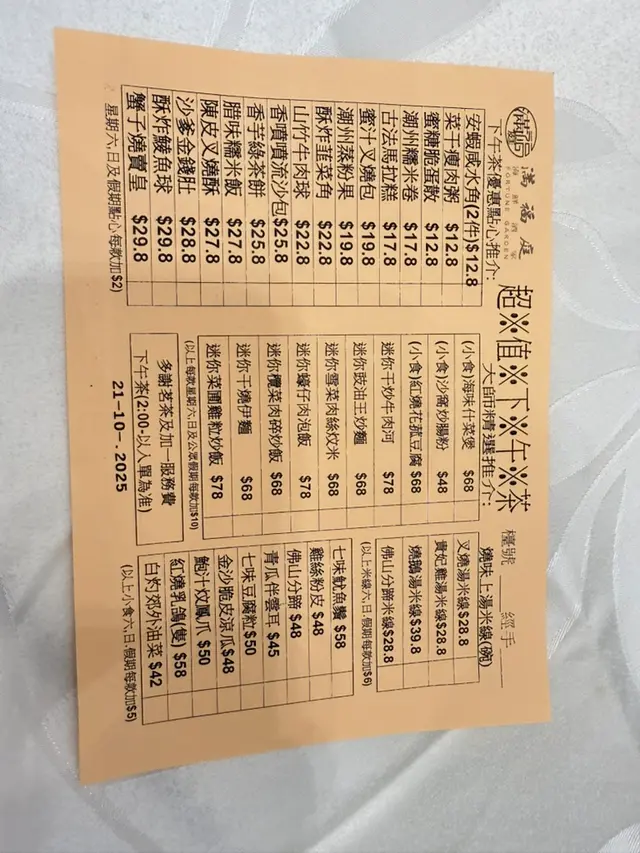 滿福庭
海鮮酒家
FORTUNE GARDEN
超※值※下※午※茶
檯號 經手
下午茶優惠點心推介:
安蝦咸水角(2件)$12.8
菜干瘦肉粥 $12.8
蜜糖脆蛋散 $12.8
潮州糯米卷 $17.8
古法馬拉糕 $17.8
蜜汁叉燒包 $19.8
潮州蒸粉果 $19.8
酥炸韮菜角 $22.8
山竹牛肉球 $22.8
香噴噴流沙包$25.8
香芋綠茶餅 $25.8
腊味糯米飯 $27.8
陳皮叉燒酥 $27.8
沙爹金錢肚 $28.8
酥炸鯪魚球 $29.8
蟹子燒賣皇 $29.8
星期六,日及假期點心,每款加$2)
大師精選推介:
(小食)海味什菜煲 $68
(小食)沙窩炒腸粉 $48
(小食)紅燒花菰豆腐 $68
迷你干炒牛肉河 $78
迷你豉油王炒麵 $68
迷你雪菜肉絲炆米 $68
迷你蠔仔肉泡飯 $78
迷你欖菜肉碎炒飯 $68
迷你干燒伊麵 $68
迷你菜圃雞粒炒飯 $78
(以上每款星期六,日及公眾假期每款加$10)
多謝茗茶及加一服務費
下午茶(2:00-以入單為准)
21-10-.2025
燒味上湯米線(碗)
叉燒湯米線$28.8
貴妃雞湯米線$28.8
燒鵝湯米線$39.8
佛山分蹄米線$28.8
(以上米線六,日,假期每款加$6)
七味魷魚鬚 $58
雞絲粉皮 $48
佛山分蹄 $48
青瓜伴雲耳 $45
七味豆腐粒$50
金沙脆皮涼瓜$48
鮑汁炆鳳爪 $50
紅燒乳鴿(隻) $58
白灼郊外油菜 $42
(以上小食六,日,假期每款加$5)